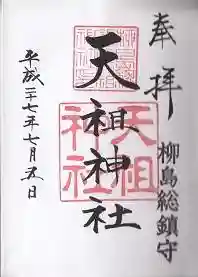 奉拝
柳島総鎮守
天祖神社
天祖
神社
平成二十七年七月五日